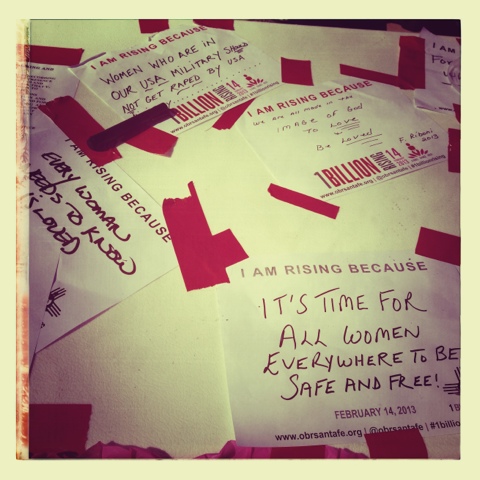 I AM RISING BECAUSE
WOMEN WHO ARE IN
OUR USA MILITARY SHOULD
NOT GET RAPED BY USA
1BILLION RISING 14
www.obrsantafe.org | @obrsantafe | #1billionrising
I AM RISING BECAUSE
We are all made in the
IMAGE of God
To Love
Be Loved
F. Riboni
2013
1BILLION RISING 14
www.obrsantafe.org | @obrsantafe | #1billionrising
I AM
FOR
I AM RISING BECAUSE
EVERY WOMAN
NEEDS TO KNOW
IS LOVED
I AM RISING BECAUSE
IT'S TIME FOR
ALL WOMEN
EVERYWHERE TO BE
SAFE AND FREE!
FEBRUARY 14, 2013
www.obrsantafe.org | @obrsantafe | #1billio